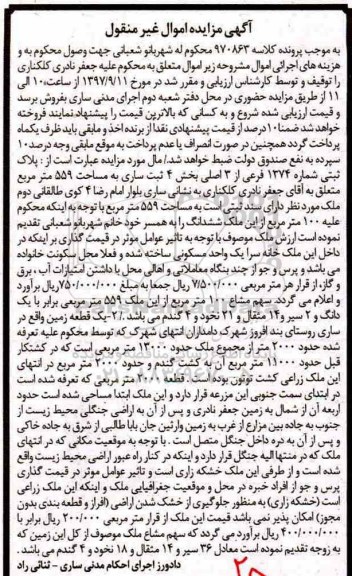 آگهی مزایده اموال غیر منقول
به موجب پرونده کلاسه ۹۷۰۸۶۳ محکوم له شهربانو شعبانی جهت وصول محکوم به و
هزینه های اجرائی اموال مشروحه زیر اموال متعلق به محکوم علیه جعفر نادری کلکناری
را توقیف و توسط کارشناس ارزیابی و مقرر شد در مورخ ۱۳۹۷/۹/۱۱ از ساعت ۱۰ الی
۱۱ از طریق مزایده حضوری در محل دفتر شعبه دوم اجرای مدنی ساری بفروش برسد
و قیمت ارزیابی شده شروع و به کسانی که بالاترین قیمت را پیشنهاد نمایند فروخته
خواهد شد ضمنا ۱۰ درصد از قیمت پیشنهادی نقدا از برنده اخذ و مابقی باید ظرف یکماه
پرداخت گردد همچنین در صورت انصراف یا عدم پرداخت به موقع مابقی وجه درصد ۱۰
سپرده به نفع صندوق دولت ضبط خواهد شد./ مال مورد مزایده عبارت است از : پلاک
ثبتی شماره ۱۳۷۴ فرعی از ۳ اصلی بخش ۴ ثبت ساری به مساحت ۵۵۹ متر مربع
متعلق به آقای جعفر نادری کلکناری به نشانی ساری بلوار امام رضا ۴ کوی طالقانی دوم
ملک مورد نظر دارای سند ثبتی است به مساحت ۵۵۹ متر مربع با توجه به اینکه محکوم
علیه ۱۰۰ متر مربع از این ملک ششدانگ را به همسر خود خانم شهربانو شعبانی تقدیم
نموده است ارزش ملک موصوف با توجه به تاثیر عوامل موثر در قیمت گذاری بر اینکه در
داخل این ملک خانه سرا یک واحد مسکونی ساخته شده و فعلا محل سکونت خانواده
می باشد و پرس و جو از چند بنگاه معاملاتی و اهالی محل با داشتن امتیازات آب ، برق
و گاز، از قرار هر متر مربعی ۷/۵۰۰/۰۰۰ ریال جمعا به مبلغ ۷۵۰/۰۰۰/۰۰۰ ریال برآورد
و اعلام می گردد، سهم مشاع ۱۰۰ متر مربع از این ملک ۵۵۹ متر مربعی برابر با یک
دانگ و ۲ سیر و ۱۴ مثقال و ۲۱ نخود و ۴ گندم می باشد ./ ۲-یک قطعه زمین واقع در
ساری روستای بند افروز شهرک دامداران انتهای شهرک که توسط محکوم علیه تعرفه
شده حدود ۲۰۰۰ متر از مجموع ملک حدود ۱۳۰۰۰ متر مربعی است که در کشتکار
قبل حدود ۱۱۰۰۰ متر مربع آن به کشت گندم و حدود ۲۰۰۰ متر مربع در انتهای
این ملک زراعی کشت توتون بوده است ، قطعه ۲۰۰۰ متر مربعی که تعرفه شده است
در ابتدای سمت جنوبی این مزرعه قرار دارد و این ملک ابتدا مساحی شده است حدود
اربعه آن از شمال به زمین جعفر نادری و پس از آن به اراضی جنگلی محیط زیست از
جنوب به جاده بین مزارع از غرب به زمین وارثین جان بابا طالبی از شرق به جاده خاکی
و پس از آن به دره داخل جنگل متصل است . با توجه به موقعیت مکانی که در انتهای
ملک که در منتها الیه جنگل قرار دارد و اینکه در کنار راه عبور اراضی محیط زیست واقع
شده است و از طرفی این ملک خشکه زاری است و تاثیر عوامل موثر در قیمت گذاری
پرس و جو از افراد خبره در محل و موقعیت جغرافیایی ملک و اینکه این ملک زراعی
است (خشکه زاری) به منظور جلوگیری از خشک شدن اراضی (افراز و قطعه بندی بدون
مجوز) امکان پذیر نمی باشد قیمت این ملک از قرار متر مربعی ۲۰۰/۰۰۰ ریال برابر با
۴۰۰/۰۰۰/۰۰۰ ریال برآورد می گردد که سهم مشاع ملک موصوف از کل این زمین که
به زوجه تقدیم نموده است معادل ۳۶ سیر و ۱۴ مثقال و ۱۸ نخود و ۴ گندم می باشد .
دادورز اجرای احکام مدنی ساری – ثنائی راد